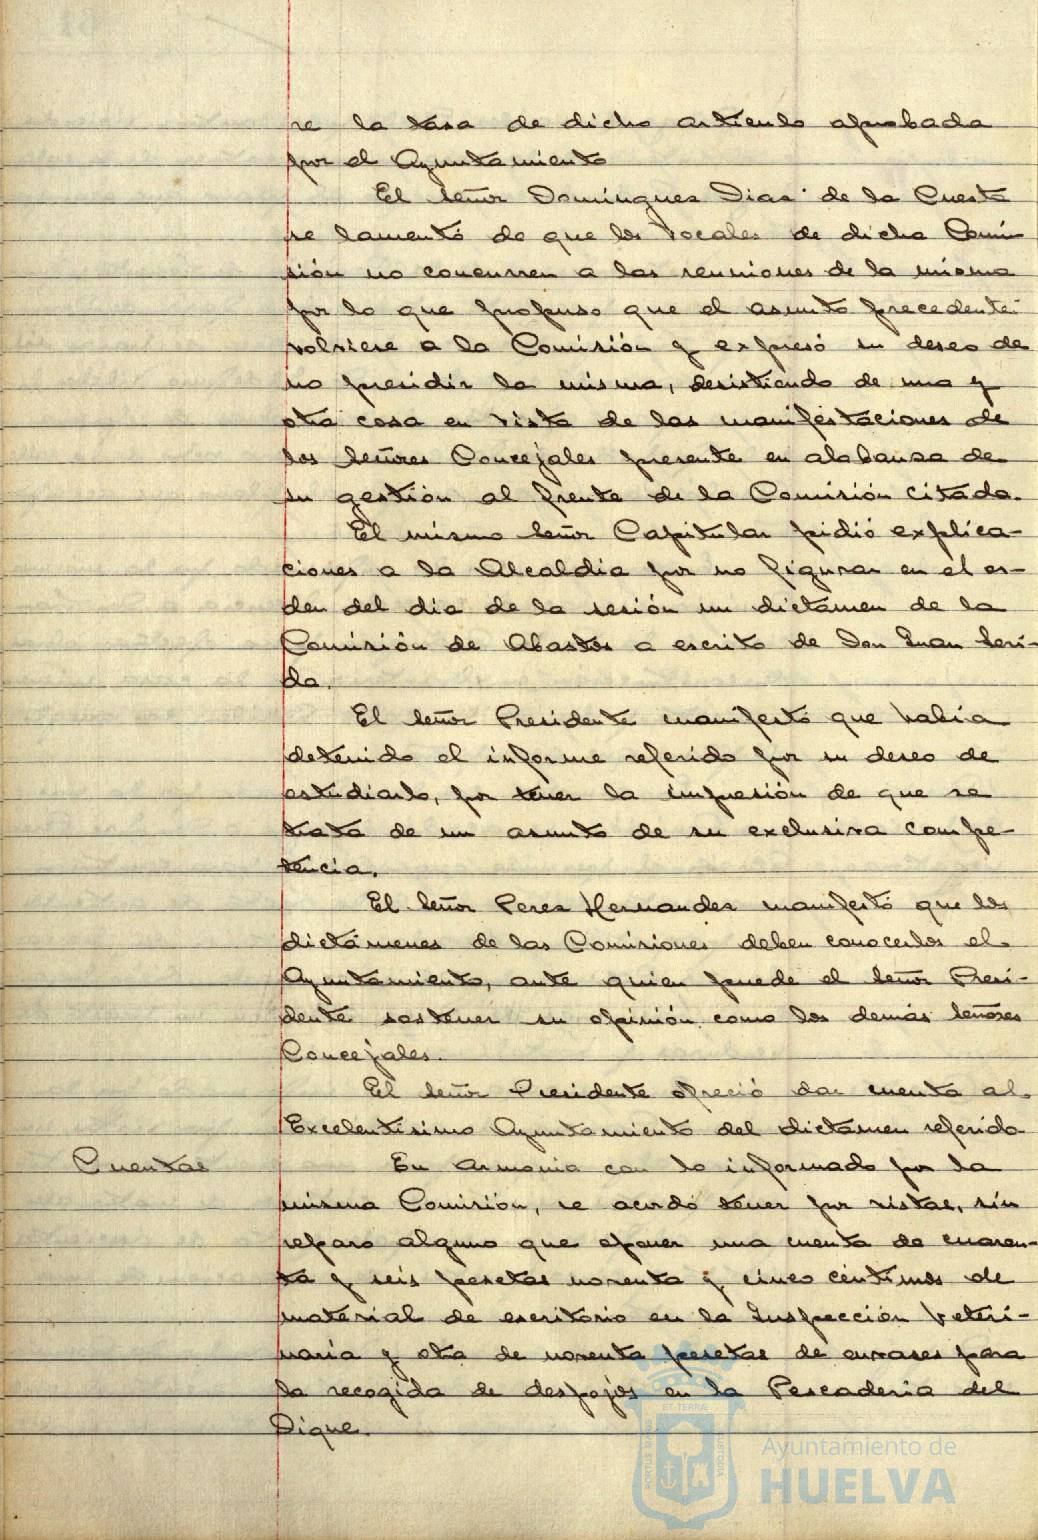 se la tasa de dicho artículo aprobada
por el Ayuntamiento
El Señor Domínguez Diaz de la Cuesta
se lamentó de que los Vocales de dicha Comi-
sión no concurren a las reuniones de la misma
por lo que propuso que el asunto precedente
volviese a la Comisión y expresó su deseo de
no presidir la misma, desistiendo de una y
otra cosa en vista de las manifestaciones de
los Señores Concejales presente en alabanza de
su gestión al frente de la Comisión citada.
El mismo Señor Capitular pidió explica-
ciones a la Alcaldía por no figurar en el or-
den del dia de la sesión un dictámen de la
Comisión de Abastos a escrito de Don Juan Seri-
da.
El Señor Presidente manifestó que había
detenido el informe referido por su deseo de
estudiarlo, por tener la impresión de que se
trata de un asunto de su exclusiva compe-
tencia.
El Señor Perez Hernandez manifestó que los
dictámenes de las Comisiones deben conocerlos el
Ayuntamiento, ante quien puede el Señor Presi-
dente sostener su opinión como los demás Señores
Concejales.
El Señor Presidente ofreció dar cuenta al
Excelentísimo Ayuntamiento del dictamen referido
Cuentas En armonia con lo informado por la
misma Comisión, se acordó tener por vistas, sin
reparo alguno que oponer una cuenta de cuaren-
ta y seis pesetas noventa y cinco céntimos de
material de escritorio en la Inspección Veteri-
naria y otra de noventa pesetas de envases para
la recogida de despojos en la Pescaderia del
Dique.
Ayuntamiento de
HUELVA